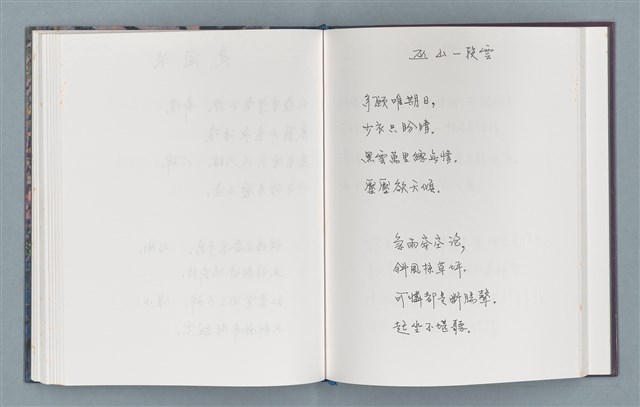 巫山一段雲
多願唯期日,
少衣只盼晴.
黑雲萬里總無情.
壓壓欲天傾.
急雨
斜風掠草坪.
可憐都是斷腸聲.
起坐不堪聽.